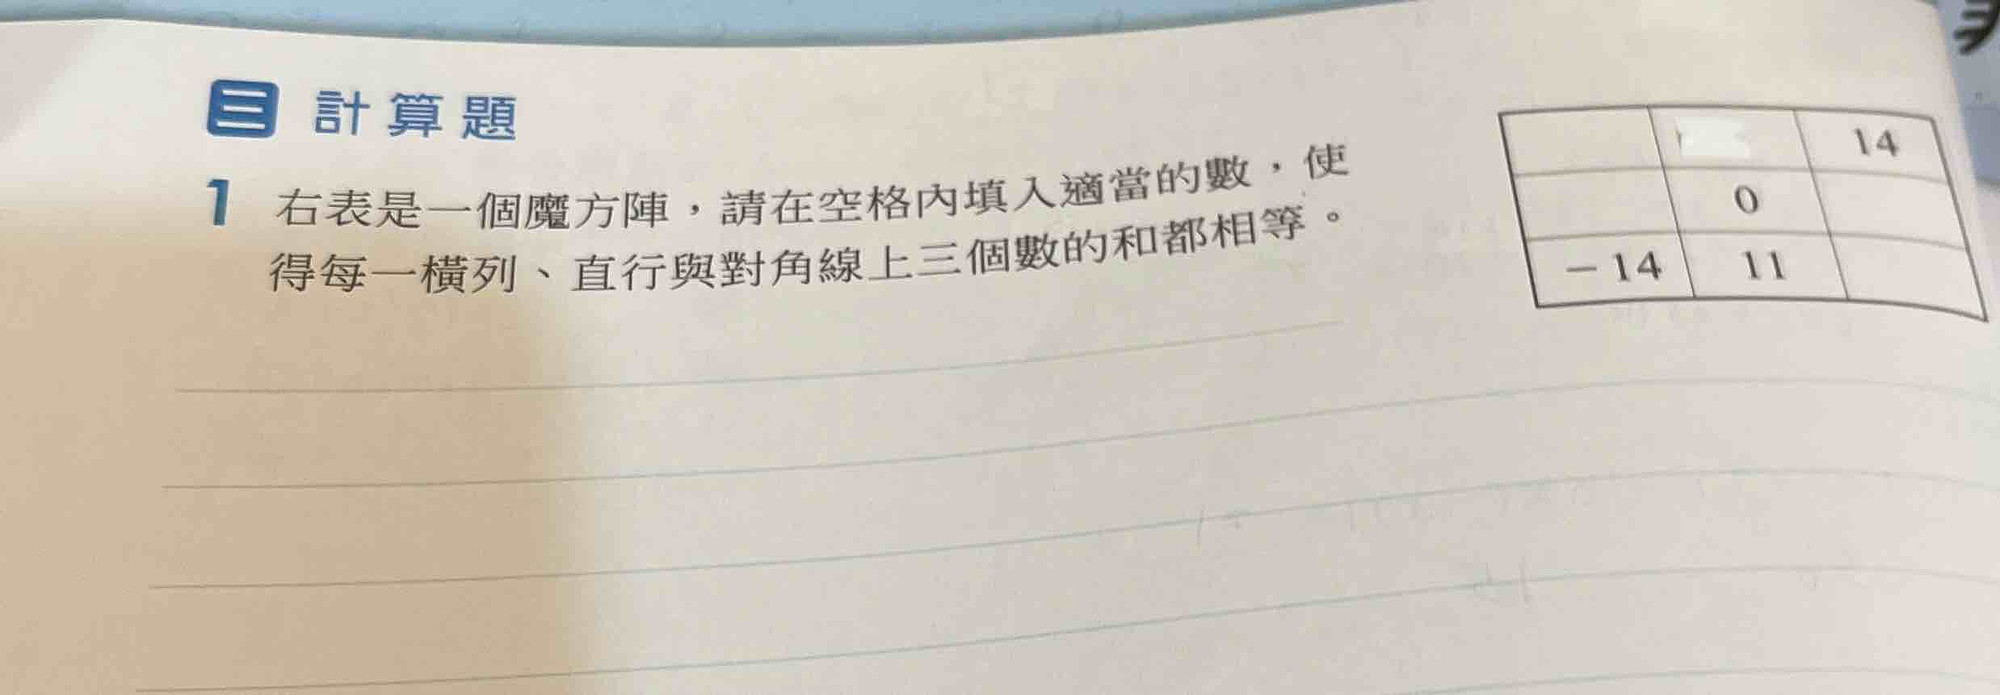 三 計算題
1 右表是一個魔方陣，請在空格內填入適當的數，使
得每一橫列、直行與對角線上三個數的和都相等。
14
0
－14 11